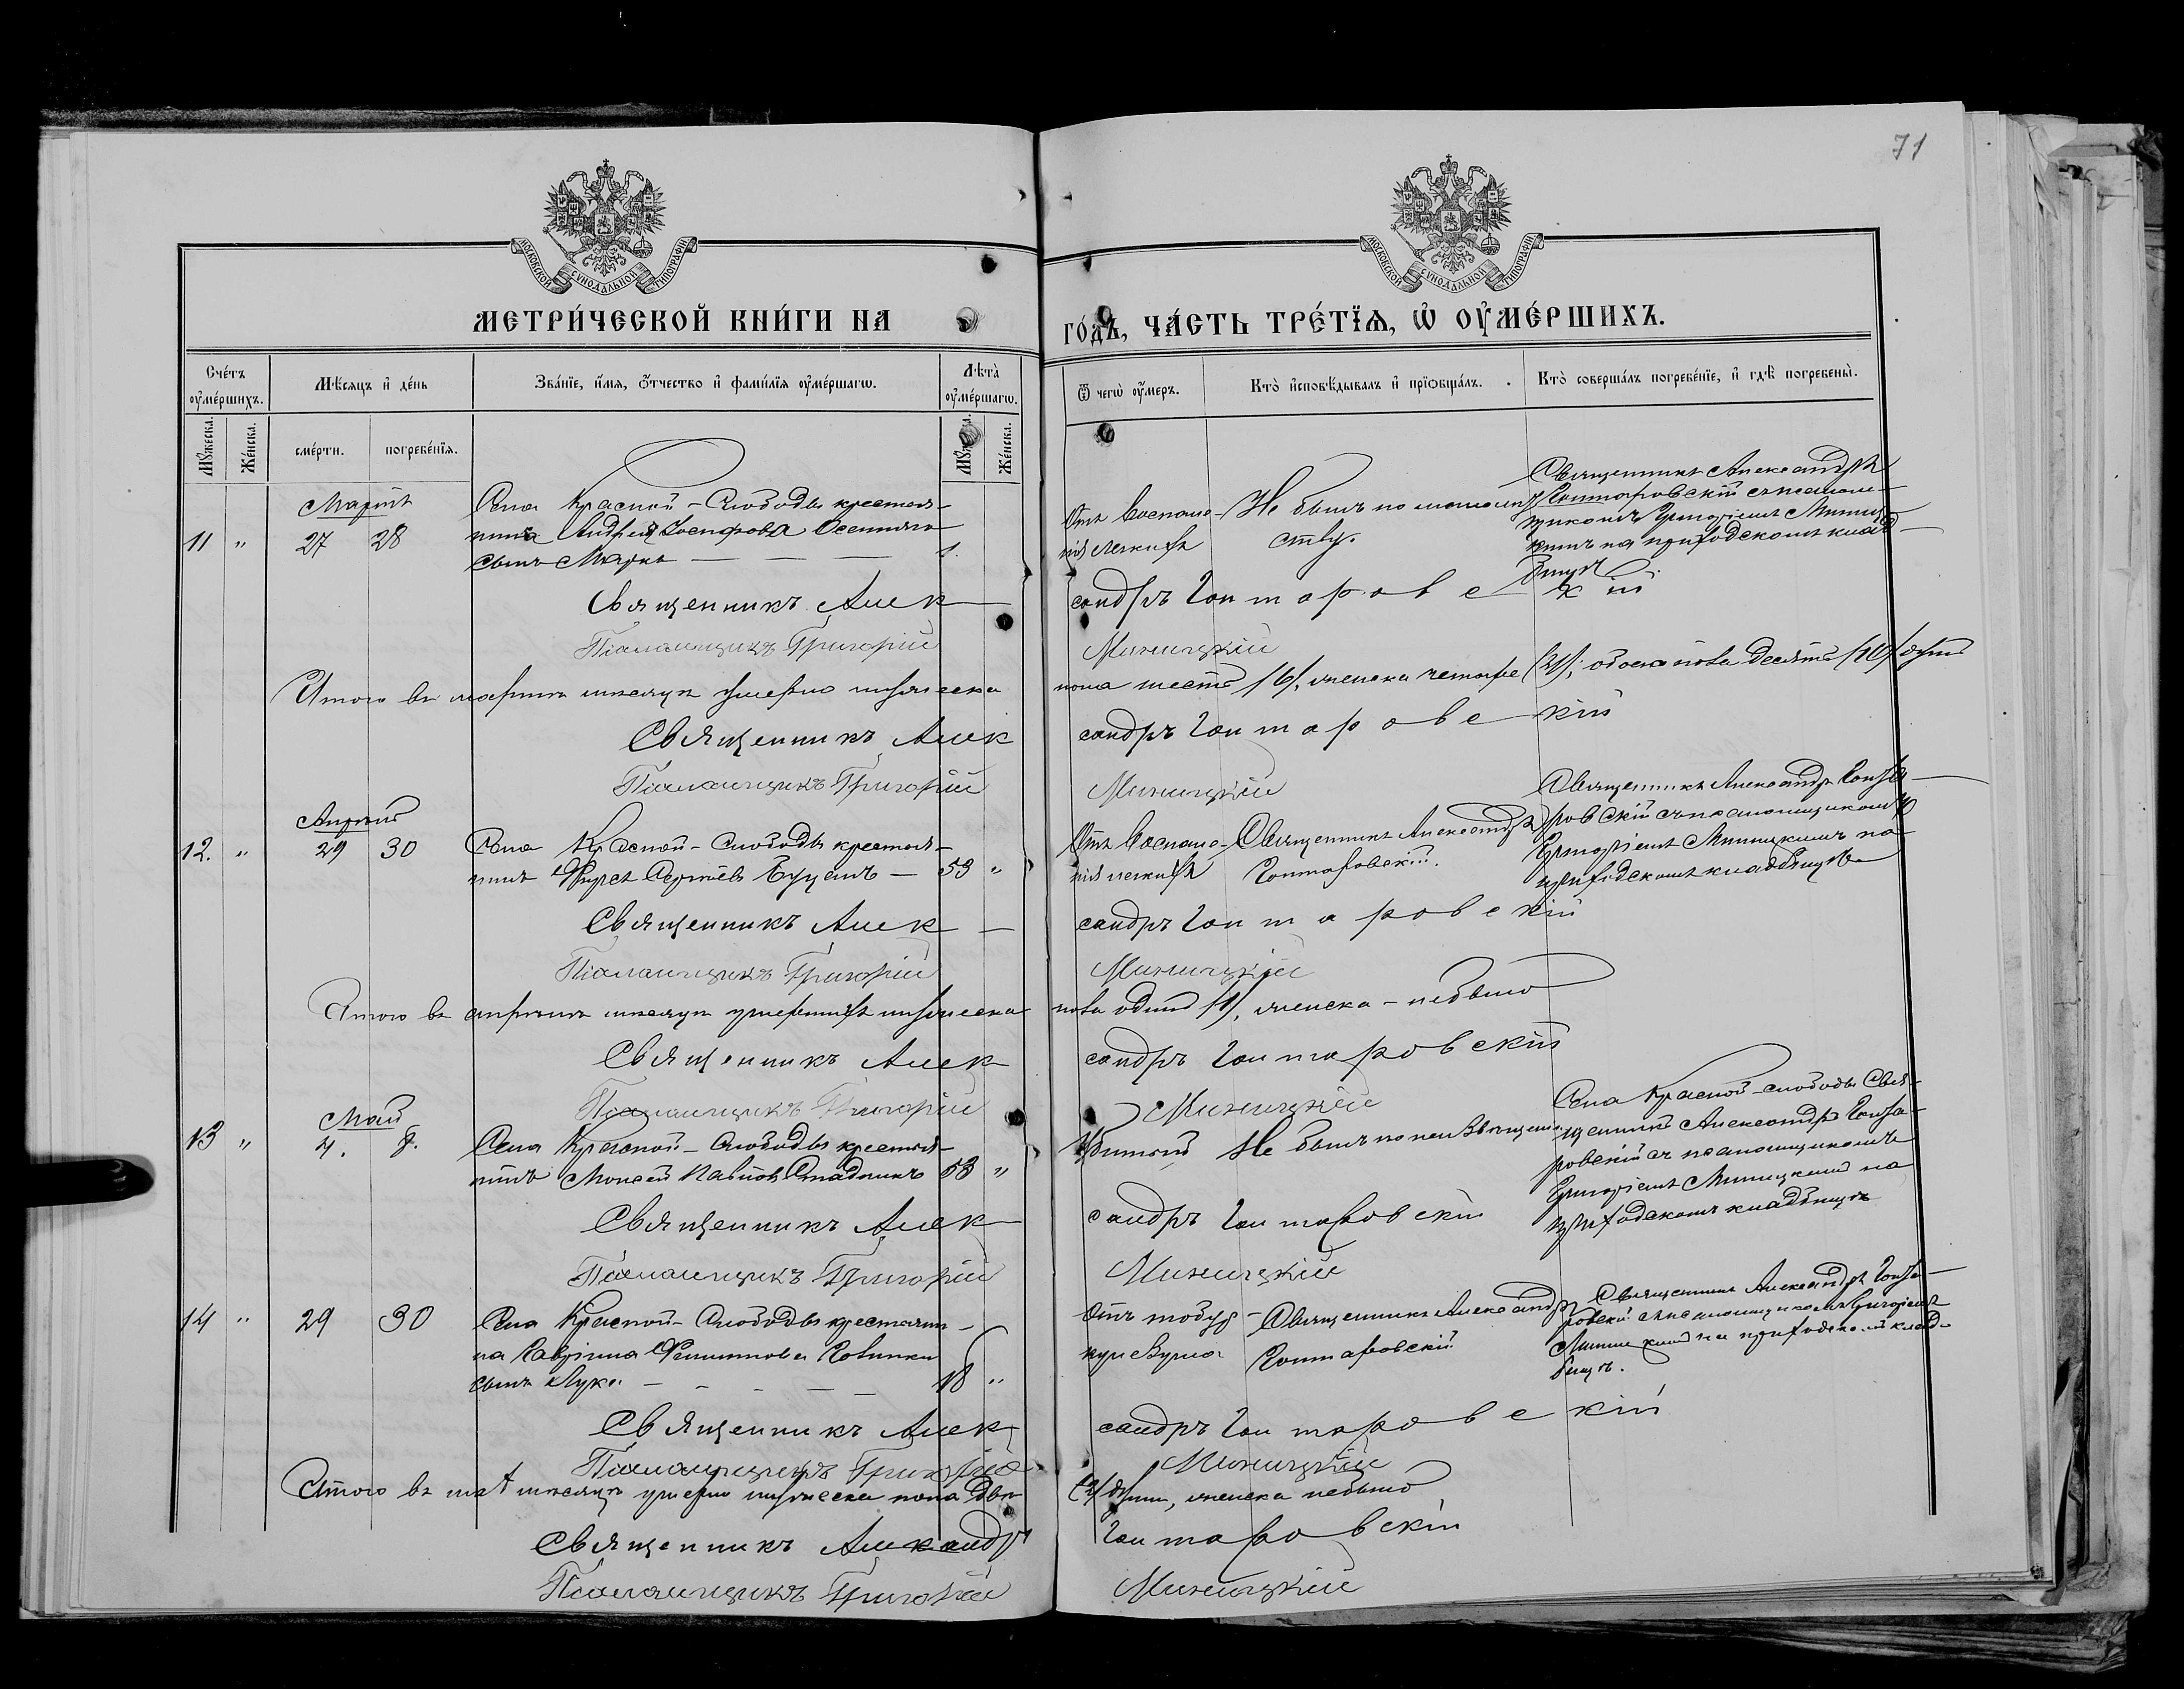 71
МОСКОВСКОЙ СУНОДАЛЬНОЙ ТИПОГРАФІИ
МОСКОВСКОЙ СУНОДАЛЬНОЙ ТИПОГРАФІИ
МЕТРИ́ЧЕСКОЙ КНИ́ГИ НА
ГО́ДЪ, ЧА́СТЬ ТРЕ́ТЇѦ, Ѡ҆ ОУ҆МЕ́РШИХЪ.
Счéтъ оу҆мéршихъ.
Мѣ́сяцъ и҆ дéнь
Звáнїе, и҆́мя, ѻ҆́тчество и҆ фами́лїя оу҆мéршагѡ.
Лѣ́та оу҆мéршагѡ.
Ѿ чегѡ̀ оу҆́меръ.
Ктò и҆сповѣ́дывалъ и҆ прїѡбщáлъ.
Ктò совершáлъ погребéнїе, и҆ гдѣ̀ погребены̀.
Мꙋ́жеска.
Жéнска.
смéрти.
погребéнїя.
Мꙋ́жеска.
Жéнска.
Мартъ
11 " 27 28
Села Красной-Слободы крестья-
нина Андрея Іосифова Осетяго
сынъ Марко — — — 1.
Отъ воспале-
нія легкихъ
Не былъ по малолѣт
ству.
Священникъ Александръ
Гонтаровскій съ псалом-
щикомъ Григоріемъ Миниц-
кимъ на приходскомъ клад-
бищѣ
Священникъ Алек
сандръ Гонтаровскій
Псаломщикъ Григорій
Миницкій
Итого въ мартѣ мѣсяцѣ умерло мужеска
пола шесть /6/, женска четыре /4/, обоего пола десять /10/ душъ
Священникъ Алек
сандръ Гонтаровскій
Псаломщикъ Григорій
Миницкій
Апрѣль
12. " 29 30
Села Красной-Слободы крестья-
нинъ Сергіевъ Буцемъ — 53 "
Отъ воспале-
нія легкихъ
Священникъ Александръ
Гонтаровскій.
Священникъ Александръ Гонта-
ровскій съ псаломщикомъ
Григоріемъ Миницкимъ на
приходскомъ кладбищѣ
Священникъ Алек
сандръ Гонтаровскій
Псаломщикъ Григорій
Миницкій
Итого въ апрѣлѣ мѣсяцѣ умершихъ мужеска
пола одинъ /1/, женска — небыло
Священникъ Алек
сандръ Гонтаровскій
Псаломщикъ Григорій
Миницкій
Май
13 " 4. 8.
Села Красной-Слободы крестья-
нинъ Моисей Павловъ 53 "
Убитый
Не былъ по
Села Красной-слободы Свя-
щенникъ Александръ Гонта-
ровскій съ псаломщикомъ
Григоріемъ Миницкимъ на
приходскомъ кладбищѣ
Священникъ Алек
сандръ Гонтаровскій
Псаломщикъ Григорій
Миницкій
14 " 29 30
Села Красной-Слободы крестьяни-
на Гавріила Филиппова
сынъ Лука — — — — — 18 "
Отъ тобур-
кулезума
Священникъ Александръ
Гонтаровскій
Священникъ Александръ Гонта-
ровскій съ псаломщикомъ Григоріемъ
Миницкимъ на приходскомъ клад-
бищѣ.
Священникъ Алек
сандръ Гонтаровскій
Псаломщикъ Григорій
Миницкій
Итого въ маѣ мѣсяцѣ умерло мужеска пола двѣ
/2/ души, женска небыло
Священникъ Александръ
Гонтаровскій
Псаломщикъ Григорій
Миницкій